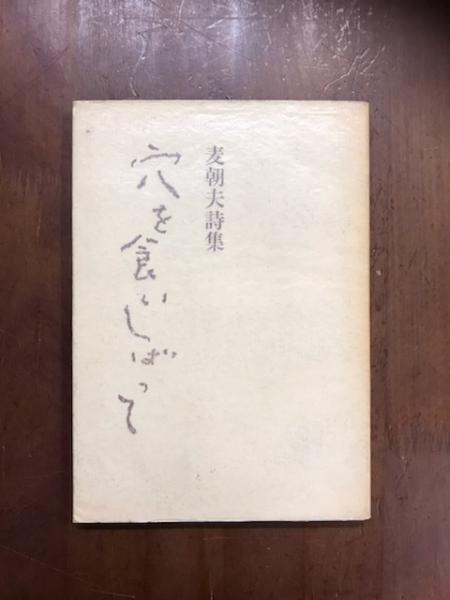 麦朝夫詩集
穴を食いしばって